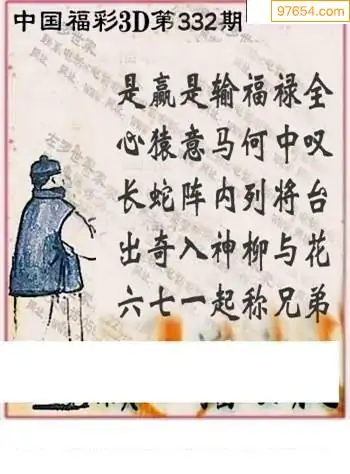 97654.com
中国福彩3D第332期
是赢是输福禄全
心猿意马何中叹
长蛇阵内列将台
出奇入神柳与花
六七一起称兄弟